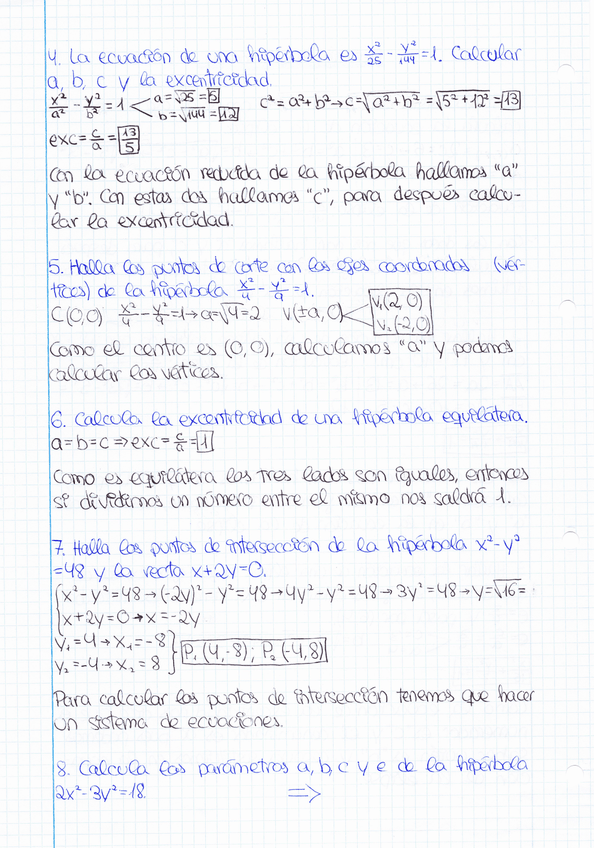 4. La ecuación de una hipérbola es x²/25 - y²/144 = 1. Calcular
a, b, c y la excentricidad.
x²/a² - y²/b² = 1 a = √25 = 5 b = √144 = 12 c² = a² + b² → c = √a² + b² = √5² + 12² = 13
exc = c/a = 13/5
Con la ecuación reducida de la hipérbola hallamos "a"
y "b". Con estas dos hallamos "c", para después calcu-
lar la excentricidad.
5. Halla los puntos de corte con los ejes coordenados (vér-
tices) de la hipérbola x²/4 - y²/9 = 1.
C(0,0) x²/4 - y²/9 = 1 → a = √4 = 2 V(±a, 0) V₁(2, 0)
V₂(-2, 0)
Como el centro es (0,0), calculamos "a" y podemos
calcular los vértices.
6. Calcula la excentricidad de una hipérbola equilátera.
a = b = c ⇒ exc = c/a = 1
Como es equilátera los tres lados son iguales, entonces
si dividimos un número entre el mismo nos saldrá 1.
7. Halla los puntos de intersección de la hipérbola x² - y²
= 48 y la recta x + 2y = 0.
x² - y² = 48 → (-2y)² - y² = 48 → 4y² - y² = 48 → 3y² = 48 → y = √16 =
x + 2y = 0 → x = -2y
y₁ = 4 → x₁ = -8
y₂ = -4 → x₂ = 8 P₁ (4, -8); P₂ (-4, 8)
Para calcular los puntos de intersección tenemos que hacer
un sistema de ecuaciones.
8. Calcula los parámetros a, b, c y e de la hipérbola
2x² - 3y² = 18. ⇒